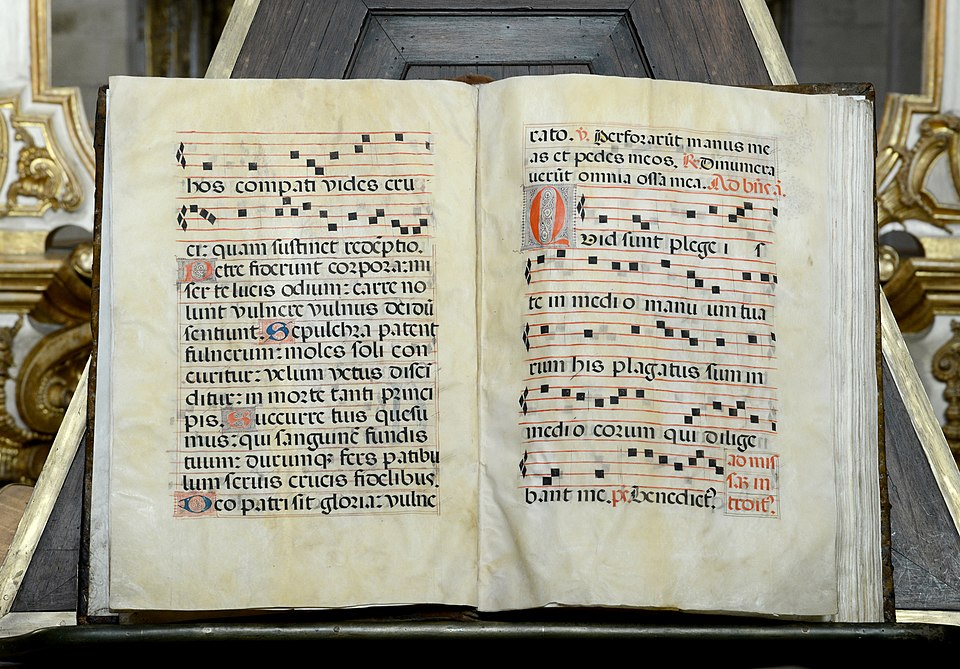 hos compati vides cru
ci: quam sustinet redēptio.
Petre fiderunt corpora: mi
ser te lucis odium: carre no
lunt vulnere vulnus deidū
sentiunt. Sepulchra patent
fulnerum: moles soli con
curitur: velum vetus disci
ditur: in morte tanti princi
pis. Succurre tuis quesu
mus: qui sanguinē fundis
tuum: durumqꝫ fers patibu
lum servis crucis fidelibus.
Deo patri sit gloria: vulne
rato. ℣. Perforarūt manus me
as et pedes meos. ℟. Dinumera
verūt omnia ossa mea. Ad bñe. ā.
Quid sunt plege i s
te in medio manuum tua
rum his plagatus sum in
medio eorum qui dilige
bant me. ps. Benedictꝰ.
ad mis
saʒ in
troitꝰ.